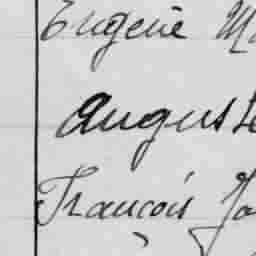 Eugène M
August
François Jo